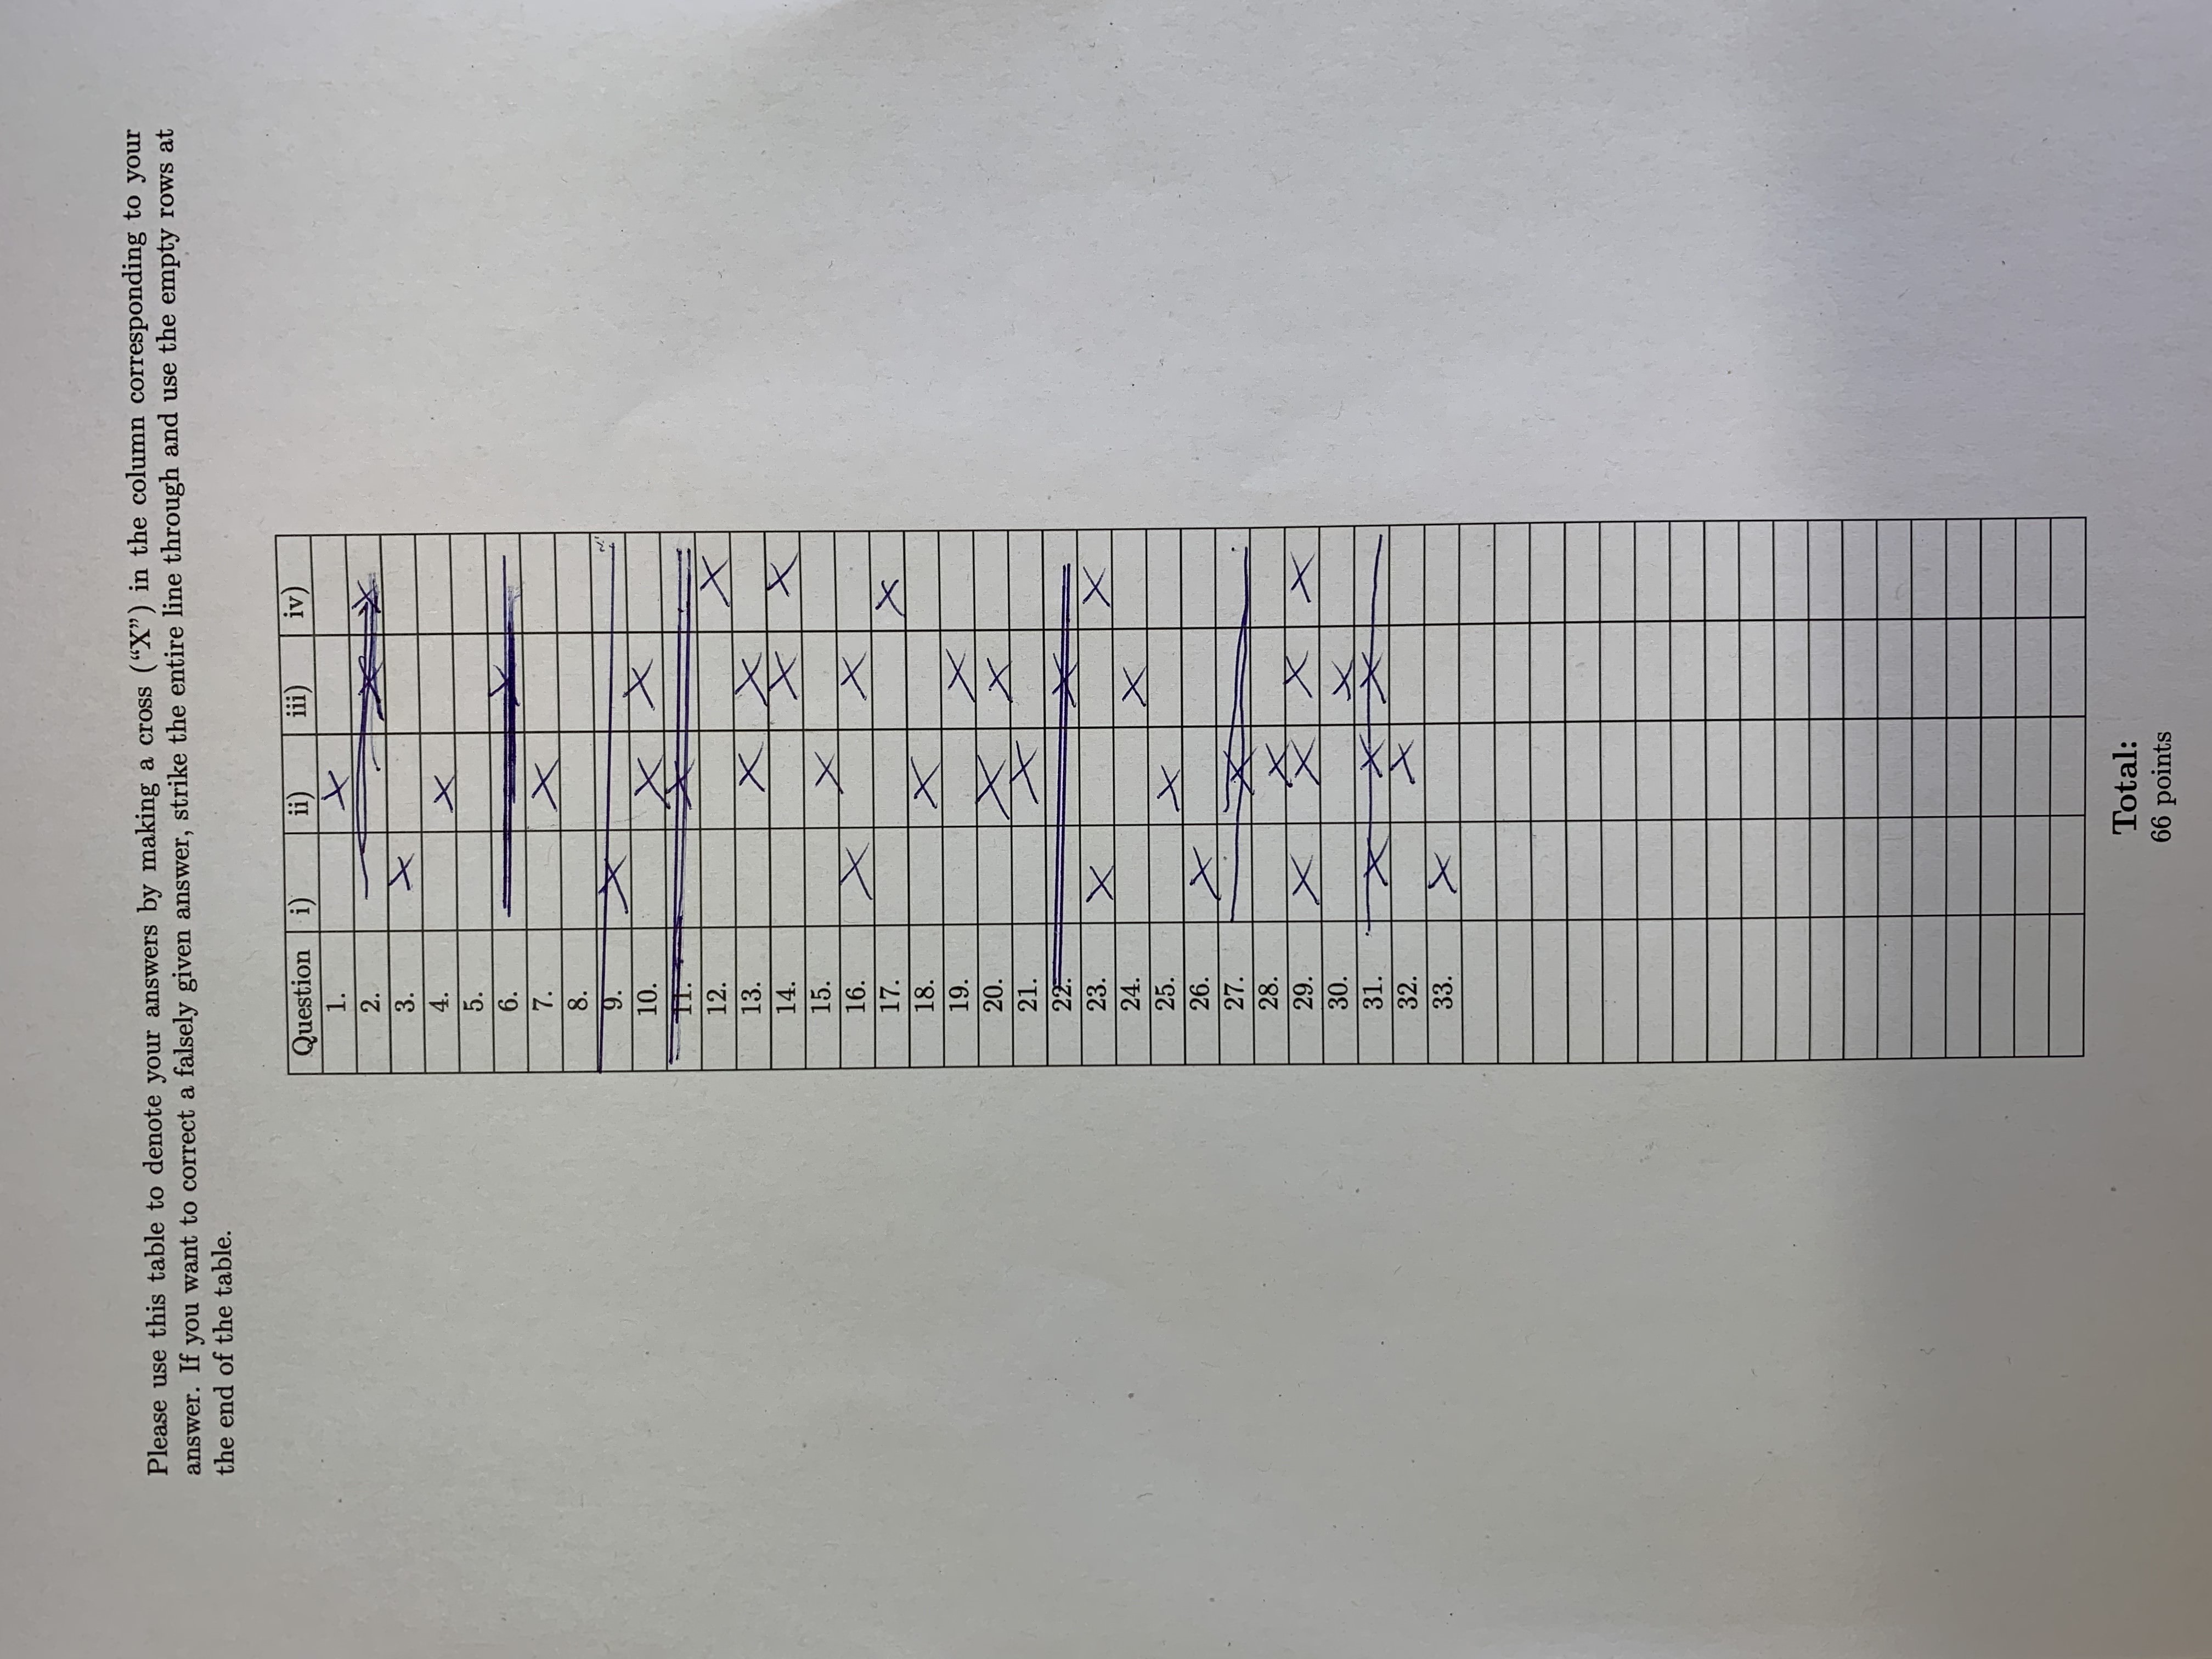 Please use this table to denote your answers by making a cross (“X”) in the column corresponding to your
answer. If you want to correct a falsely given answer, strike the entire line through and use the empty rows at
the end of the table.
Question i) ii) iii) iv)
1. X
2. X X
3. X
4. X
5.
6. X
7. X
8.
9. X
10. X X
11. X
12. X
13. X X
14. X X
15. X
16. X X
17. X
18. X
19. X
20. X X
21. X
22. X
23. X X
24. X
25. X
26. X
27. X
28. X
29. X X X X
30. X
31. X X X
32. X
33. X
Total:
66 points